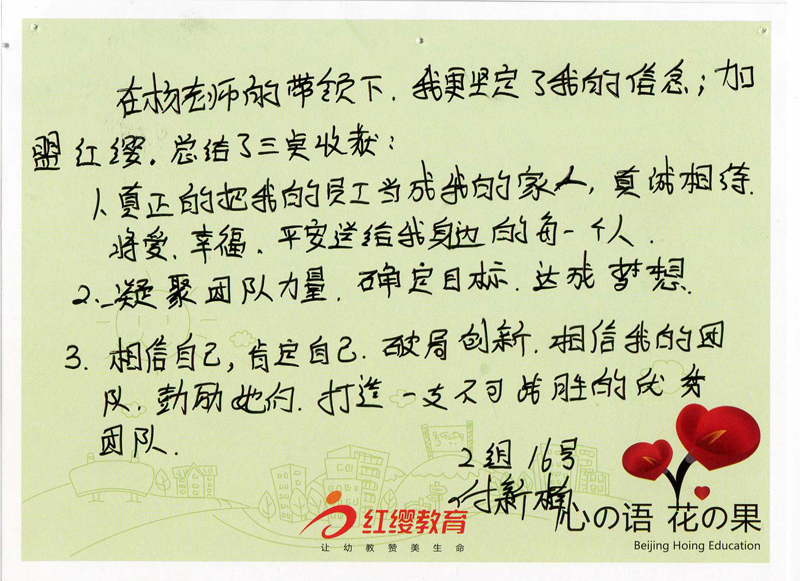 在杨老师的带领下，我更坚定了我的信念；加
盟红缨，总结了三点收获：
1、真正的把我的员工当成我的家人，真诚相待.
将爱、幸福、平安送给我身边的每一个人.
2、凝聚团队力量，确定目标，达成梦想.
3. 相信自己，肯定自己.破局创新.相信我的团
队.鼓励她们.打造一支不可战胜的优秀
团队.
2组 16号
付新
红缨教育
让幼教赞美生命
心の语 花の果
Beijing Hoing Education